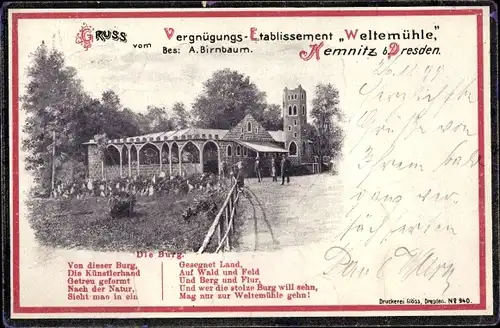 Gruss vom Vergnügungs-Etablissement „Weltemühle,"
Bes: A. Birnbaum. Kemnitz b/Dresden.
Herzliche
Grüße von
Ihrem bald
ganz ver
Die Burg.
Von dieser Burg,
Die Künstlerhand
Getreu geformt
Nach der Natur,
Sieht man in ein
Gesegnet Land,
Auf Wald und Feld
Und Berg und Flur,
Und wer die stolze Burg will sehn,
Mag nur zur Weltemühle gehn!
Druckerei Glöss, Dresden. No 940.